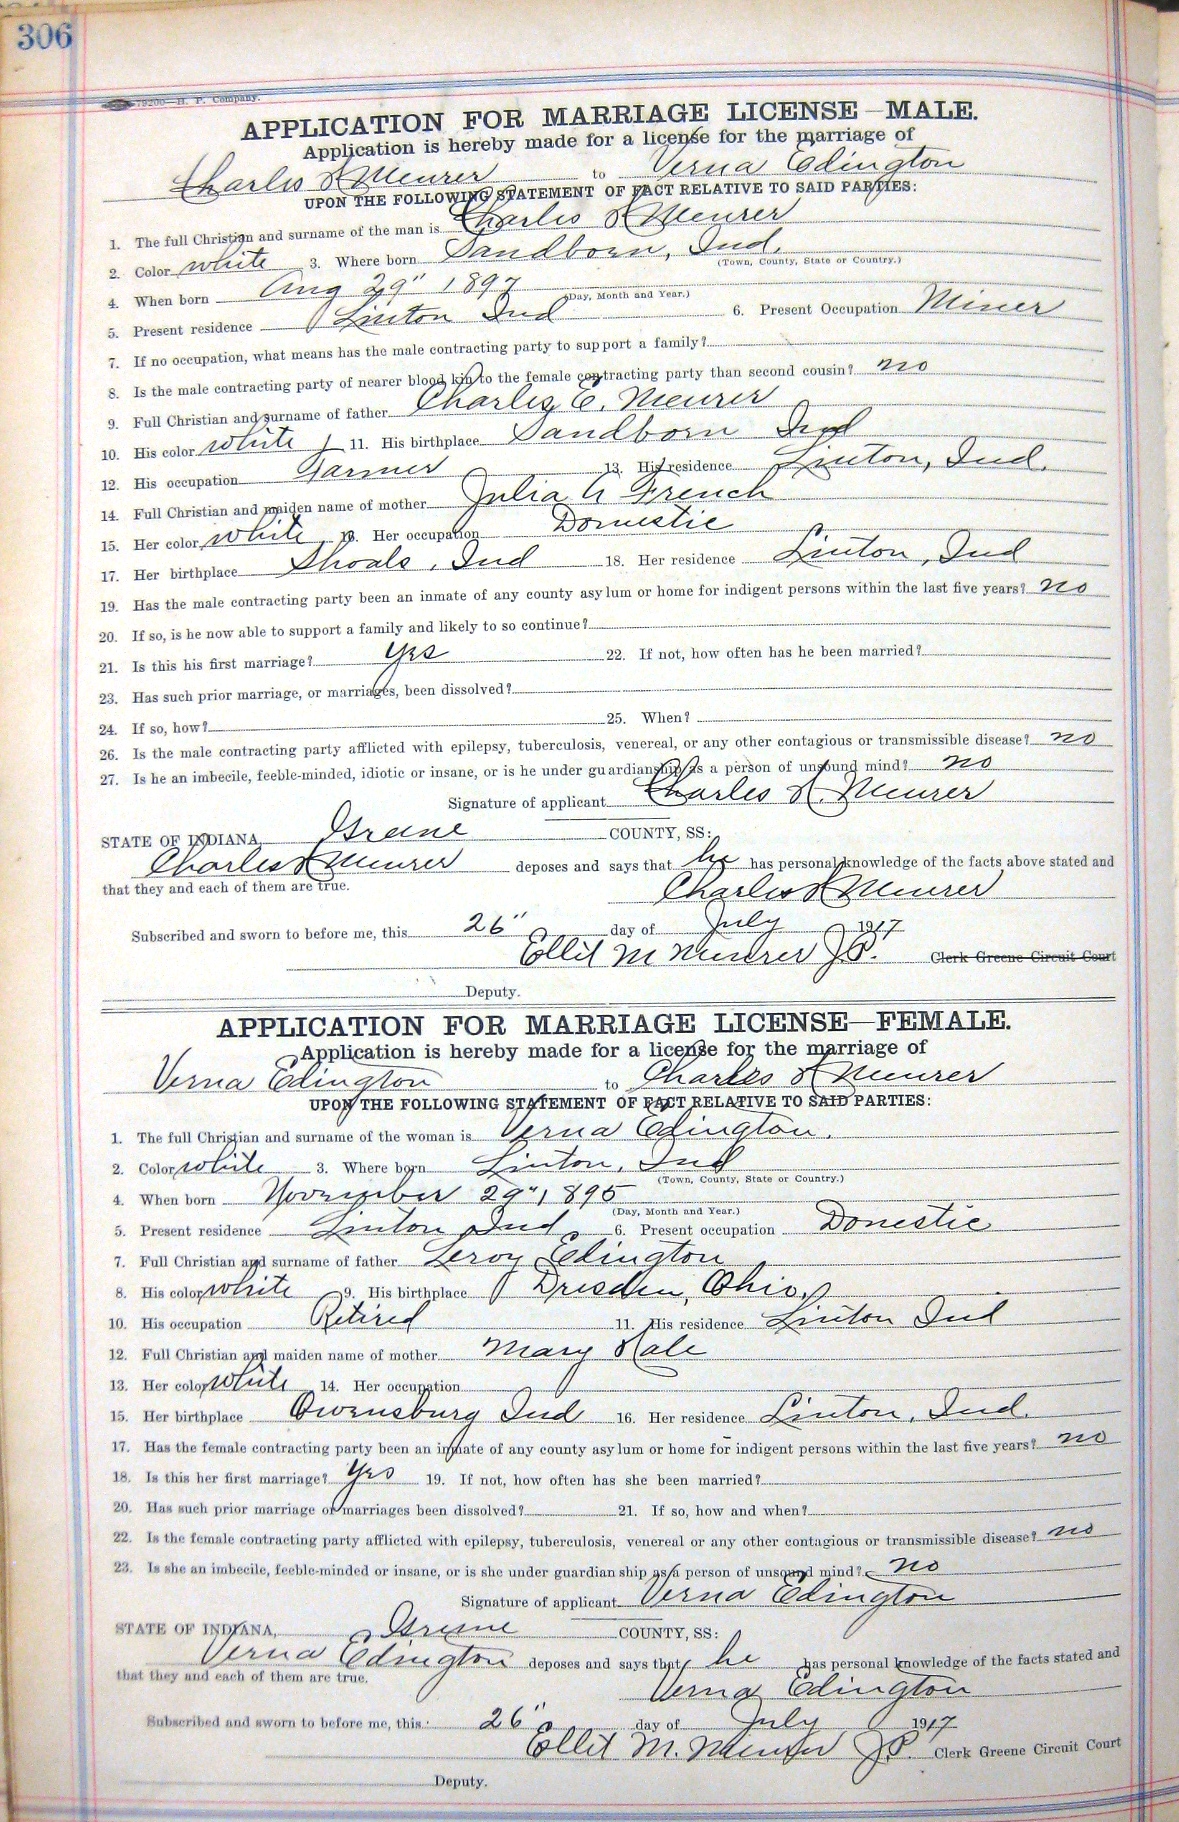 306
79200—H. P. Company.
APPLICATION FOR MARRIAGE LICENSE—MALE.
Application is hereby made for a license for the marriage of
Charles H Meurer to Verna Edington
UPON THE FOLLOWING STATEMENT OF FACT RELATIVE TO SAID PARTIES:
1. The full Christian and surname of the man is Charles H Meurer
2. Color white 3. Where born Sandborn, Ind.
(Town, County, State or Country.)
4. When born Aug 29" 1897
(Day, Month and Year.)
5. Present residence Linton Ind 6. Present Occupation Miner
7. If no occupation, what means has the male contracting party to support a family?
8. Is the male contracting party of nearer blood kin to the female contracting party than second cousin? no
9. Full Christian and surname of father Charles E. Meurer
10. His color white 11. His birthplace Sandborn Ind
12. His occupation Farmer 13. His residence Linton, Ind.
14. Full Christian and maiden name of mother Julia A French
15. Her color white 16. Her occupation Domestic
17. Her birthplace Shoals, Ind 18. Her residence Linton, Ind
19. Has the male contracting party been an inmate of any county asylum or home for indigent persons within the last five years? no
20. If so, is he now able to support a family and likely to so continue?
21. Is this his first marriage? yes 22. If not, how often has he been married?
23. Has such prior marriage, or marriages, been dissolved?
24. If so, how? 25. When?
26. Is the male contracting party afflicted with epilepsy, tuberculosis, venereal, or any other contagious or transmissible disease? no
27. Is he an imbecile, feeble-minded, idiotic or insane, or is he under guardianship as a person of unsound mind? no
Signature of applicant Charles H. Meurer
STATE OF INDIANA, Greene COUNTY, SS:
Charles H Meurer deposes and says that he has personal knowledge of the facts above stated and
that they and each of them are true.
Charles H Meurer
Subscribed and sworn to before me, this 26" day of July 1917
Ellit M Meurer J.P. Clerk Greene Circuit Court
Deputy.
APPLICATION FOR MARRIAGE LICENSE—FEMALE.
Application is hereby made for a license for the marriage of
Verna Edington to Charles H Meurer
UPON THE FOLLOWING STATEMENT OF FACT RELATIVE TO SAID PARTIES:
1. The full Christian and surname of the woman is Verna Edington.
2. Color white 3. Where born Linton, Ind
(Town, County, State or Country.)
4. When born November 29" 1895
(Day, Month and Year.)
5. Present residence Linton Ind 6. Present occupation Domestic
7. Full Christian and surname of father Leroy Edington
8. His color white 9. His birthplace Dresden, Ohio.
10. His occupation Retired 11. His residence Linton Ind
12. Full Christian and maiden name of mother Mary Hale
13. Her color white 14. Her occupation
15. Her birthplace Owensburg Ind 16. Her residence Linton, Ind.
17. Has the female contracting party been an inmate of any county asylum or home for indigent persons within the last five years? no
18. Is this her first marriage? yes 19. If not, how often has she been married?
20. Has such prior marriage or marriages been dissolved? 21. If so, how and when?
22. Is the female contracting party afflicted with epilepsy, tuberculosis, venereal or any other contagious or transmissible disease? no
23. Is she an imbecile, feeble-minded or insane, or is she under guardianship as a person of unsound mind? no
Signature of applicant Verna Edington
STATE OF INDIANA, Greene COUNTY, SS:
Verna Edington deposes and says that he has personal knowledge of the facts stated and
that they and each of them are true.
Verna Edington
Subscribed and sworn to before me, this 26" day of July 1917
Ellit M. Meurer J.P. Clerk Greene Circuit Court
Deputy.